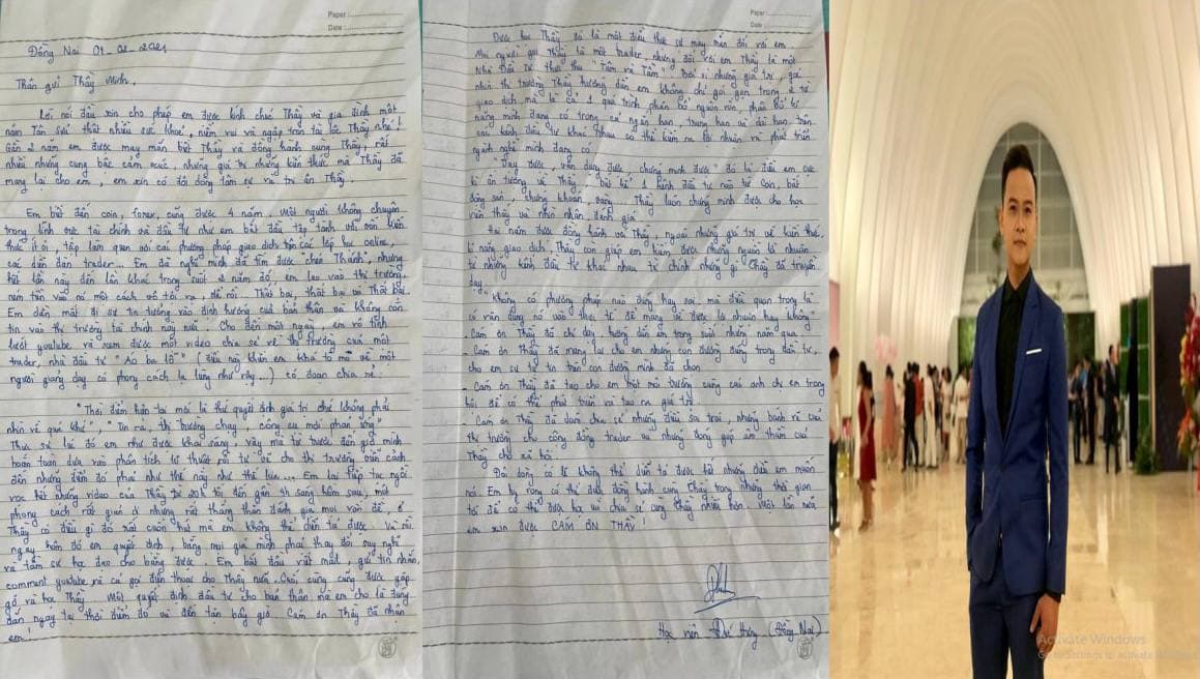 Paper :
Date :
Đồng Nai 01-02-2021
Thân gửi Thầy Minh.
Lời nói đầu xin cho phép em được kính chúc Thầy và gia đình một
năm Tân Sửu thật nhiều sức khoẻ, niềm vui và ngập tràn tài lộc Thầy nhé!
Gần 2 năm em được may mắn biết Thầy và đồng hành cùng Thầy, rất
nhiều những cung bậc cảm xúc, những giá trị những kiến thức mà Thầy đã
mang lại cho em, em xin có đôi dòng tâm sự và tri ân Thầy.
Em biết đến coin, forex, cũng được 4 năm. Một người không chuyên
trong lĩnh vực tài chính và đầu tư như em bắt đầu tập tành với vốn kiến
thức ít ỏi, tập làm quen với các phương pháp giao dịch trên các lớp học online,
các diễn đàn trader... Em đã nghĩ mình đã tìm được "chén Thánh", nhưng
hết lần này đến lần khác trong suốt 2 năm đó, em lao vào thị trường,
ném tiền vào nó một cách vô tội vạ, để rồi. Thất bại, thất bại và Thất bại.
Em dần mất đi sự tin tưởng vào định hướng của bản thân và không còn
tin vào thị trường tài chính này nữa. Cho đến một ngày, em vô tình
lướt youtube và xem được một video chia sẻ về thị trường của một
trader, nhà đầu tư "Áo ba lỗ" (điều này khiến em khá tò mò về một
người giảng dạy có phong cách lạ lùng như vậy...) có đoạn chia sẻ:
"Thời điểm hiện tại mới là thứ quyết định giá trị chứ không phải
nhìn về quá khứ", "Tin ra, thị trường chạy" công cụ mới phản ứng"
Thực sự lúc đó em như được khai sáng, vậy mà từ trước đến giờ mình
hoàn toàn dựa vào phân tích từ thước rồi tự đề cho thị trường một cách
đến những điểm đó phải như thế này như thế kia... Em lại tiếp tục ngồi
xem hết những video của Thầy từ 20h tối đến gần 4h sáng hôm sau, một
phong cách rất giản dị nhưng rất thẳng thắn đánh giá mọi vấn đề, ở
Thầy có điều gì đó rất cuốn hút mà em không thể diễn tả được. Và rồi
ngay hôm đó em quyết định, bằng mọi giá mình phải thay đổi suy nghĩ
và tầm sư học đạo cho bằng được. Em bắt đầu viết mail, gửi tin nhắn,
comment youtube và cả gọi điện thoại cho Thầy nữa. Cuối cùng cũng được gặp
gỡ và học Thầy. Một quyết định đầu tư cho bản thân mà em cho là đúng
đắn ngay tại thời điểm đó và đến tận bây giờ. Cảm ơn Thầy đã nhận
em!
Paper :
Date :
Được học Thầy đó là một điều thực sự may mắn đối với em.
Mọi người gọi Thầy là một trader, nhưng đối với em Thầy là một
Nhà Đầu Tư thực thụ "Tâm và Tầm". Bởi vì những giá trị, cái
nhìn thị trường Thầy hướng dẫn em không chỉ gói gọn trong
giao dịch mà là cả 1 quá trình phân bổ nguồn vốn, phân bổ kĩ
năng mình đang có trong cả ngắn hạn trung hạn và dài hạn, trên
các kênh đầu tư khác nhau có thể kiếm ra lợi nhuận và phát triển
ngành nghề mình đang có.
"Dạy được, vận dụng được, chứng minh được" đó là điều em cực
kì ấn tượng về Thầy, bất kì 1 kênh đầu tư nào từ Coin, bất
động sản, chứng khoán, vàng... Thầy luôn chứng minh được cho học
viên thấy và nhìn nhận, đánh giá.
Hai năm được đồng hành với Thầy, ngoài những giá trị về kiến thức
kĩ năng giao dịch, Thầy còn giúp em kiếm được những nguồn lợi nhuận
từ những kênh đầu tư khác nhau từ chính những gì Thầy đã truyền
dạy.
"Không có phương pháp nào đúng hay sai mà điều quan trọng là
có vận dụng nó vào thực tế để mang về được lợi nhuận hay không"
Cảm ơn Thầy đã chỉ dạy, hướng dẫn em trong suốt những năm qua.
Cảm ơn Thầy đã mang lại cho em những con đường đúng trong đầu tư,
cho em sự tự tin trên con đường mình đã chọn.
Cảm ơn Thầy đã tạo cho em một môi trường cùng các anh chị em trong
hội để có thể phát triển và tạo ra giá trị.
Cảm ơn Thầy đã dám chia sẻ những điều sai trái, những banh vẽ của
thị trường cho cộng đồng trader và những đóng góp âm thầm của
Thầy cho xã hội.
Đôi dòng có lẽ không thể diễn tả được hết những điều em muốn
nói. Em hy vọng có thể được đồng hành cùng Thầy trong những thời gian
tới để có thể được học và chia sẻ cùng Thầy nhiều hơn. Một lần nữa
em xin được CẢM ƠN THẦY!
Học viên Hưng (Đồng Nai)
Activate Windows